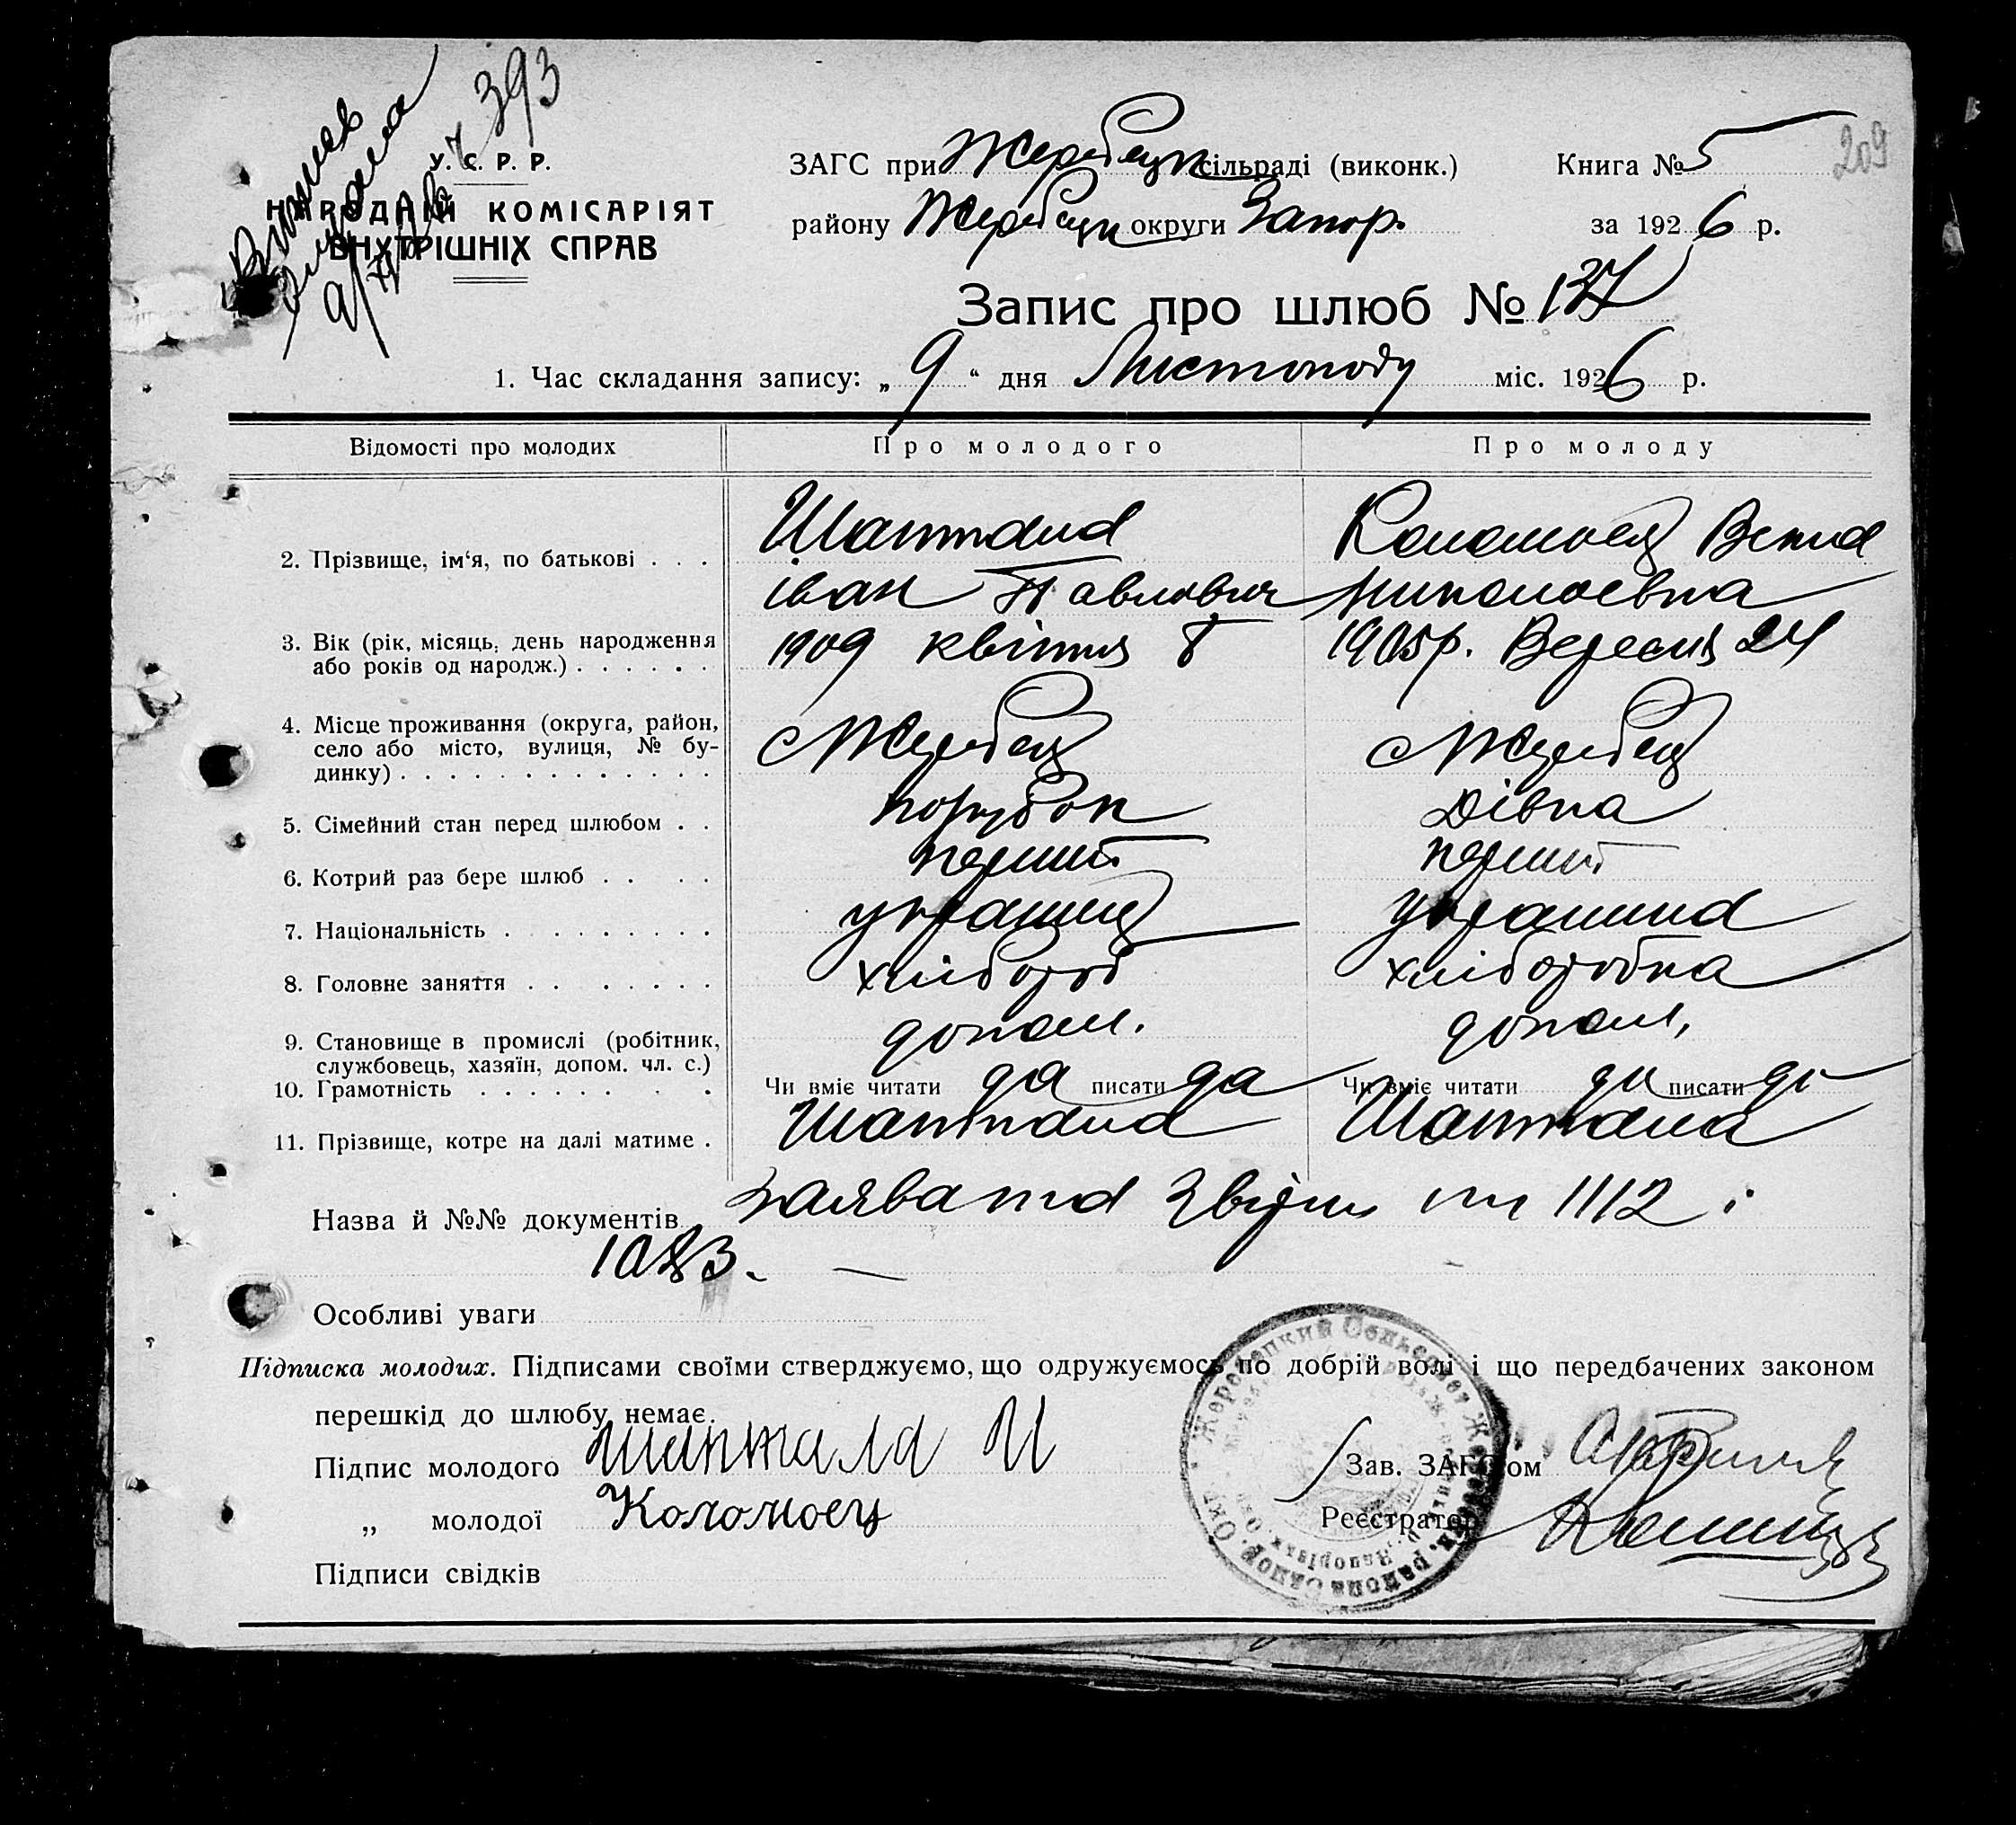 393
У. С. Р. Р.
НАРОДНІЙ КОМІСАРІЯТ
ВНУТРІШНІХ СПРАВ
ЗАГС при Жеребецк сільраді (виконк.) Книга № 5 209
району Жеребецк округи Запор. за 1926 р.
Запис про шлюб № 137
1. Час складання запису: „ 9 “ дня Листопаду міс. 1926 р.
Відомості про молодих Про молодого Про молоду
Шаптала Коломоєць
2. Прізвище, ім‘я, по батькові . . .
Іван Павлович Николаевна
3. Вік (рік, місяць, день народження 1909 квітня 8 1905р. Вересня 24
або років од народж.) . . . . . .
4. Місце проживання (округа, район,
село або місто, вулиця, № бу- с Жеребець с Жеребець
динку) . . . . . . . . . . . . .
5. Сімейний стан перед шлюбом . . парубок Дівка
6. Котрий раз бере шлюб . . . . перший перший
7. Національність . . . . . . . . . українець українка
8. Головне заняття . . . . . . . . хлібороб хліборобка
9. Становище в промислі (робітник, допом. допом.
службовець, хазяїн, допом. чл. с.)
10. Грамотність . . . . . . . . Чи вміє читати да писати да Чи вміє читати да писати да
11. Прізвище, котре на далі матиме . Шаптала Шаптала
Назва й №№ документів заява та 1112 і
1083.
Особливі уваги
Підписка молодих. Підписами своїми стверджуємо, що одружуємось по добрій волі і що передбачених законом
перешкід до шлюбу немає.
Підпис молодого Шаптала И Зав. ЗАГСом
„ молодої Коломоец Реєстратор
Підписи свідків